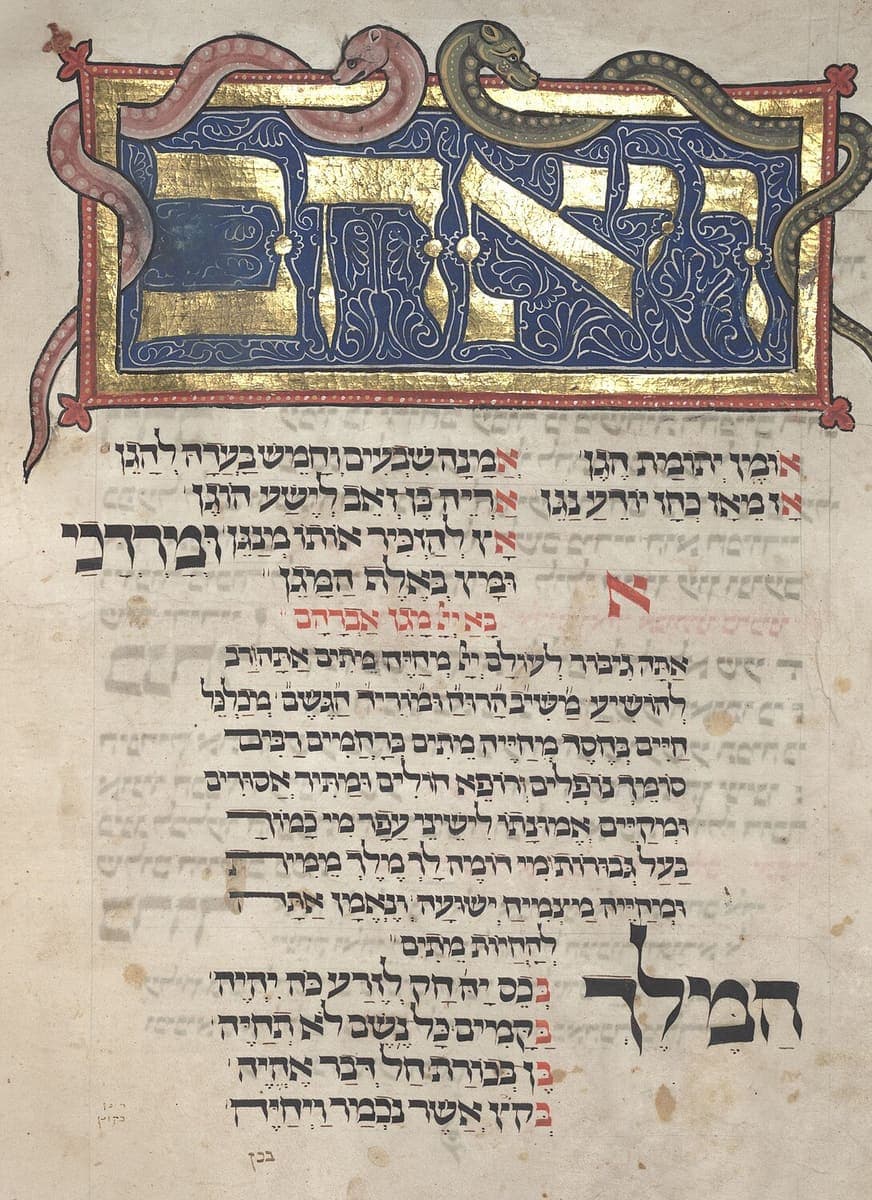 ויאהב
אומן יתומת הגן אמנה שבעים וחמש בערה להגן
אז מאז כחו יודע נגן אריה בן זאב לישע הוגן
אץ להזכיר אותו מנגן ומרדכי
ומיץ באלת המיגן
א
בא יי מגן אברהם
אתה גיבור לעולם יי מחיה מתים אתה רב
להושיע משיב הרוח ומוריד הגשם מכלכל
חיים בחסד מחייה מתים ברחמים רבים
סומך נופלים ורופא חולים ומתיר אסורים
ומקיים אמונתו לישיני עפר מי כמוך
בעל גבורות מי דומה לך מלך ממית
ומחייה מצמיח ישועה ונאמן אתה
להחיות מתים
המלך
בכס יה חק לזרע כה יהיה
בקמים כל נשם לא תחיה
בן בכורת חל דבר אהיה
בקץ אשר נכמר ויחיה
בכן